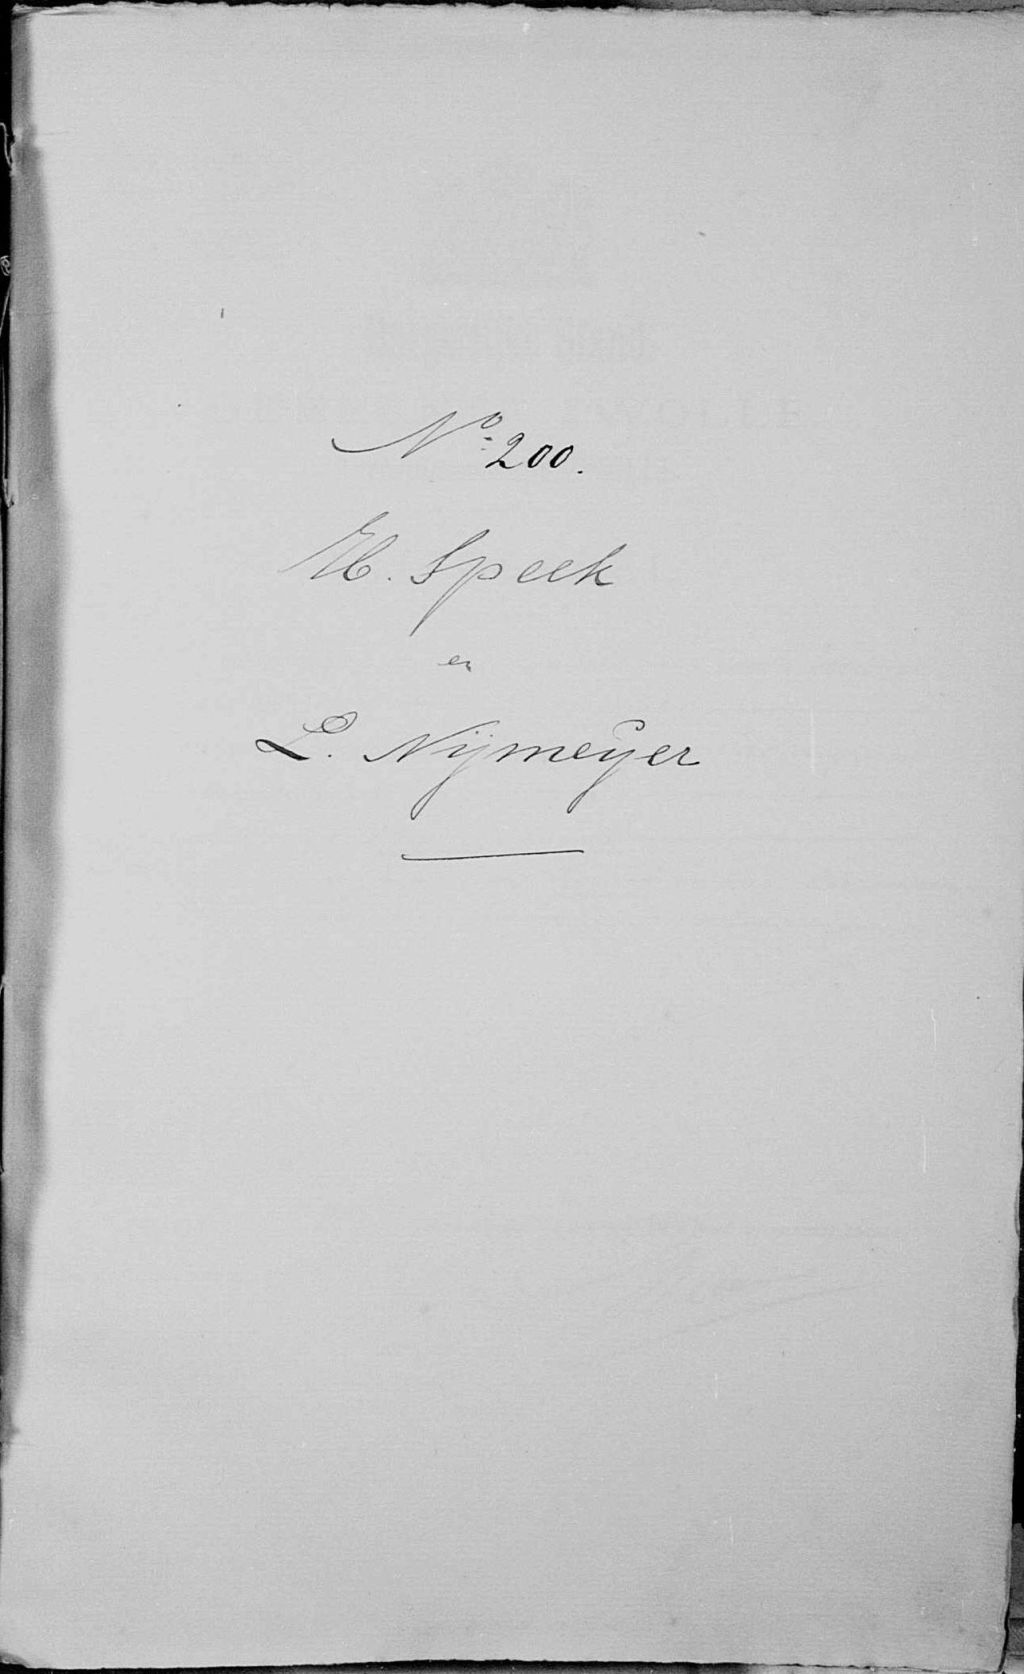 No 200.
H. Speek
en
L. Nijmeijer